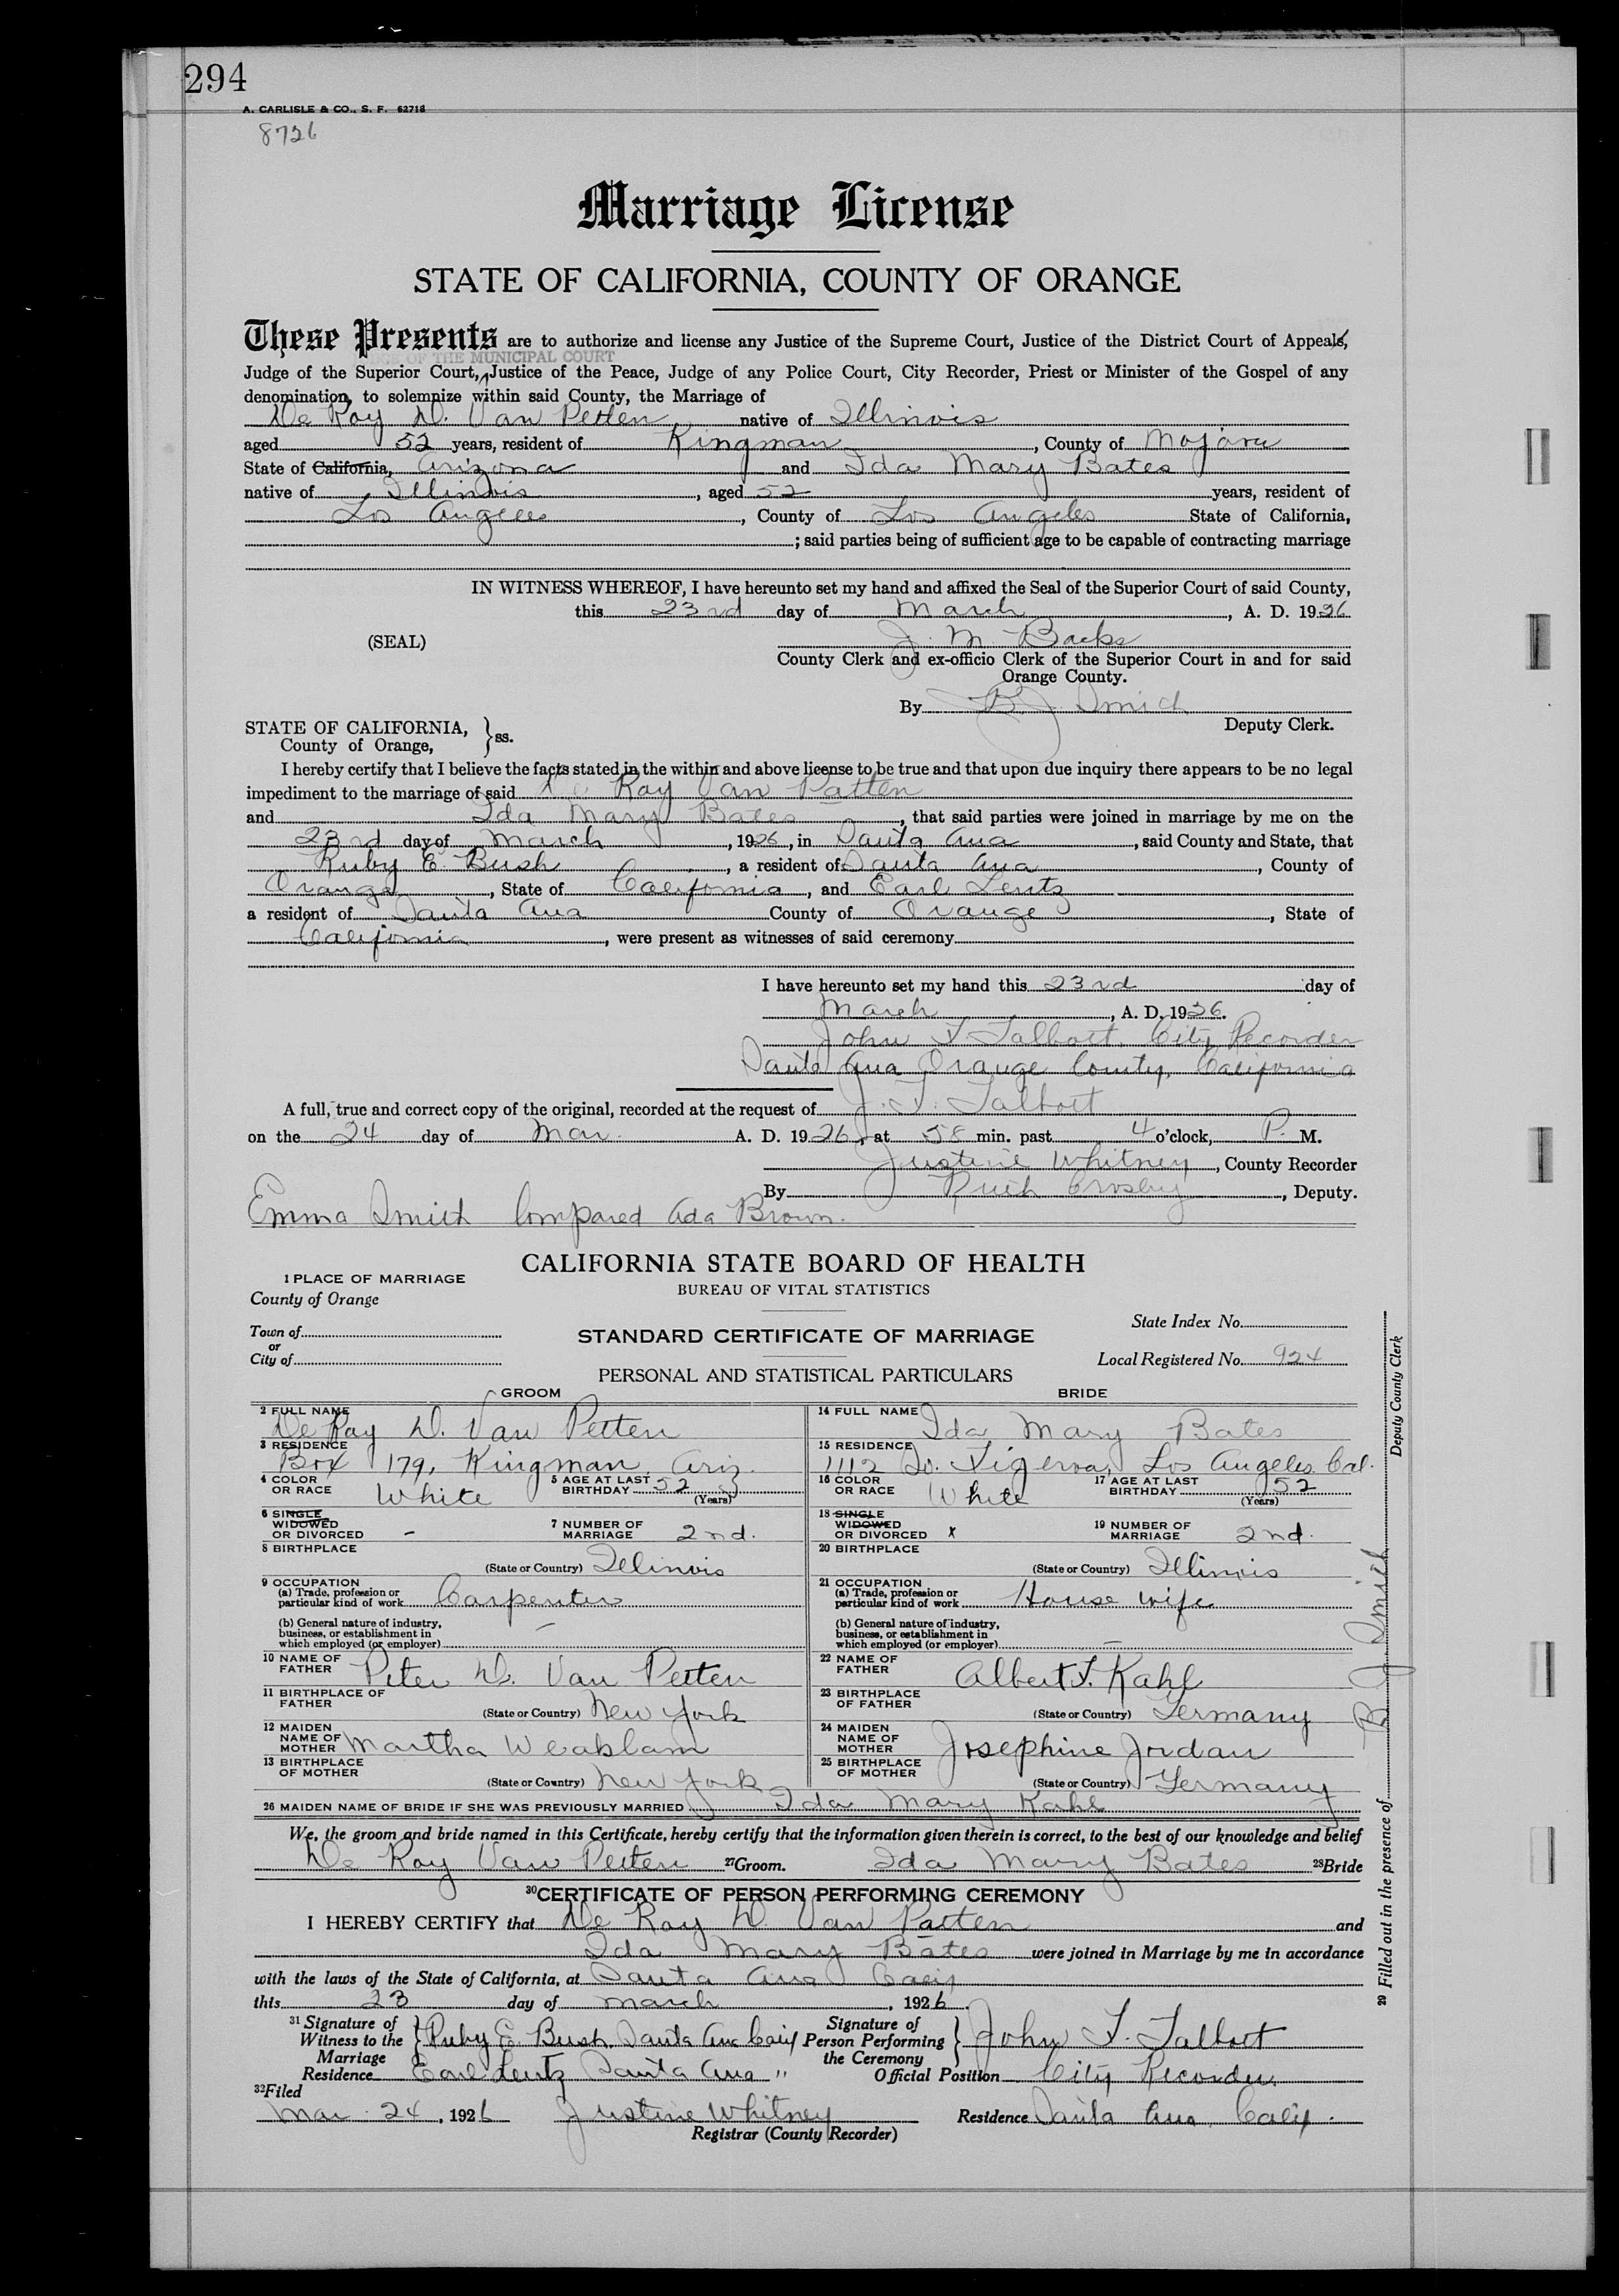 294
A. CARLISLE & CO., S. F. 62718
8726
Marriage License
STATE OF CALIFORNIA, COUNTY OF ORANGE
These Presents are to authorize and license any Justice of the Supreme Court, Justice of the District Court of Appeals,
OF THE MUNICIPAL COURT
Judge of the Superior Court, Justice of the Peace, Judge of any Police Court, City Recorder, Priest or Minister of the Gospel of any
denomination, to solemnize within said County, the Marriage of
De Ray D. Van Petten native of Illinois
aged 52 years, resident of Kingman, County of Mojave
State of California, Arizona and Ida Mary Bates
native of Illinois, aged 52 years, resident of
Los Angeles, County of Los Angeles State of California,
; said parties being of sufficient age to be capable of contracting marriage
IN WITNESS WHEREOF, I have hereunto set my hand and affixed the Seal of the Superior Court of said County,
this 23rd day of March, A. D. 1926
(SEAL) J. M. Backs
County Clerk and ex-officio Clerk of the Superior Court in and for said
Orange County.
By B. J. Smith
Deputy Clerk.
STATE OF CALIFORNIA,
County of Orange, } ss.
I hereby certify that I believe the facts stated in the within and above license to be true and that upon due inquiry there appears to be no legal
impediment to the marriage of said De Ray Van Patten
and Ida Mary Bates, that said parties were joined in marriage by me on the
23rd day of March, 1926, in Santa Ana, said County and State, that
Ruby E. Bush, a resident of Santa Ana, County of
Orange, State of California, and Earl Lentz
a resident of Santa Ana County of Orange, State of
California, were present as witnesses of said ceremony
I have hereunto set my hand this 23rd day of
March, A. D. 1926.
John F. Talbott, City Recorder
Santa Ana Orange County, California
A full, true and correct copy of the original, recorded at the request of J. F. Talbott
on the 24 day of Mar. A. D. 1926, at 58 min. past 4 o'clock, P. M.
Justine Whitney, County Recorder
By Ruth Crosby, Deputy.
Emma Smith Compared Ada Brown.
CALIFORNIA STATE BOARD OF HEALTH
BUREAU OF VITAL STATISTICS
1 PLACE OF MARRIAGE
County of Orange
Town of
or
City of
STANDARD CERTIFICATE OF MARRIAGE
State Index No.
Local Registered No. 924
PERSONAL AND STATISTICAL PARTICULARS
GROOM BRIDE
2 FULL NAME De Ray D. Van Petten
14 FULL NAME Ida Mary Bates
3 RESIDENCE Box 179, Kingman, Ariz.
15 RESIDENCE 1112 So. Figeroa, Los Angeles, Cal.
4 COLOR OR RACE White 5 AGE AT LAST BIRTHDAY 52 (Years)
16 COLOR OR RACE White 17 AGE AT LAST BIRTHDAY 52 (Years)
6 SINGLE WIDOWED OR DIVORCED - 7 NUMBER OF MARRIAGE 2nd.
18 SINGLE WIDOWED OR DIVORCED x 19 NUMBER OF MARRIAGE 2nd.
8 BIRTHPLACE (State or Country) Illinois
20 BIRTHPLACE (State or Country) Illinois
9 OCCUPATION
(a) Trade, profession or particular kind of work Carpenter
21 OCCUPATION
(a) Trade, profession or particular kind of work House wife
(b) General nature of industry, business, or establishment in which employed (or employer) —
(b) General nature of industry, business, or establishment in which employed (or employer) —
10 NAME OF FATHER Peter D. Van Petten
22 NAME OF FATHER Albert F. Kahl
11 BIRTHPLACE OF FATHER (State or Country) New York
23 BIRTHPLACE OF FATHER (State or Country) Germany
12 MAIDEN NAME OF MOTHER Martha Weaklam
24 MAIDEN NAME OF MOTHER Josephine Jordan
13 BIRTHPLACE OF MOTHER (State or Country) New York
25 BIRTHPLACE OF MOTHER (State or Country) Germany
26 MAIDEN NAME OF BRIDE IF SHE WAS PREVIOUSLY MARRIED Ida Mary Kahl
We, the groom and bride named in this Certificate, hereby certify that the information given therein is correct, to the best of our knowledge and belief
De Ray Van Petten 27 Groom. Ida Mary Bates 28 Bride
29 Filled out in the presence of B. J. Smith Deputy County Clerk
30 CERTIFICATE OF PERSON PERFORMING CEREMONY
I HEREBY CERTIFY that De Ray D. Van Patten and
Ida Mary Bates were joined in Marriage by me in accordance
with the laws of the State of California, at Santa Ana Calif
this 23 day of March, 1926.
31 Signature of Witness to the Marriage } Ruby E. Bush. Santa Ana Calif
Signature of Person Performing the Ceremony } John F. Talbott
Residence Earl Lentz Santa Ana "
Official Position City Recorder.
32 Filed
Mar. 24, 1926 Justine Whitney Residence Santa Ana, Calif.
Registrar (County Recorder)